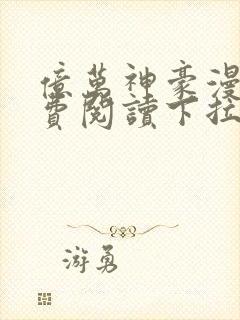 億萬神豪漫
費閱讀下拉
游勇